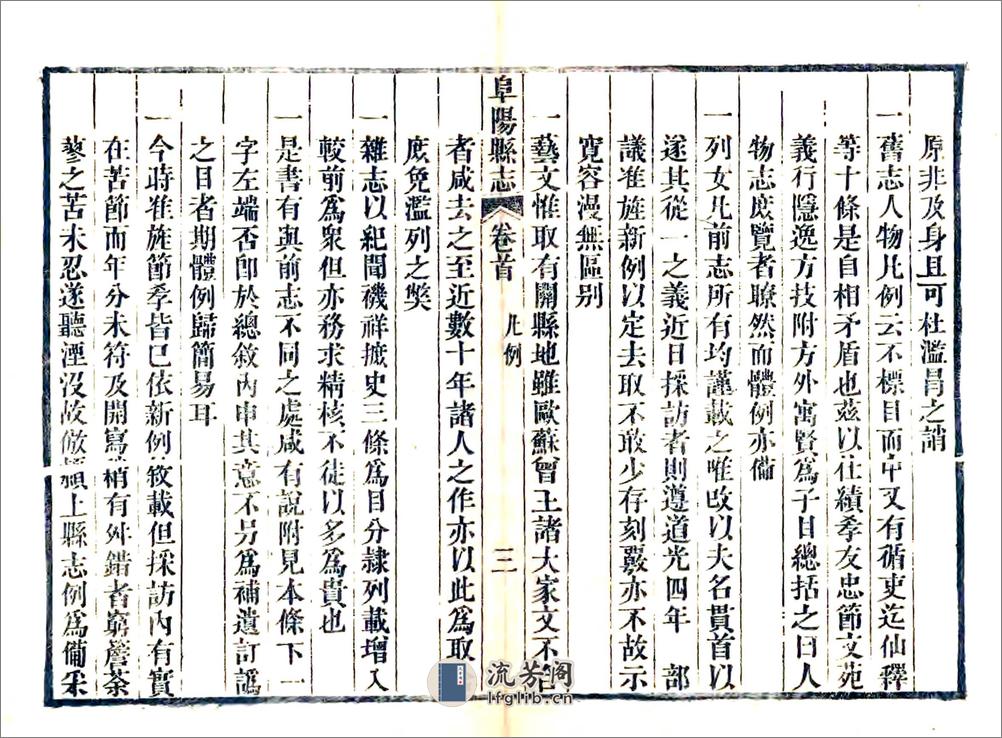 原非及身且可杜濫冒之誚
一舊志人物凡例云不標目而中又有循吏迄仙釋
等十條是自相矛盾也茲以仕績孝友忠節文苑
義行隱逸方技附方外寓賢爲子目總括之曰人
物志庶覽者瞭然而體例亦備
一列女凡前志所有均謹載之唯改以夫名貫首以
遂其從一之義近日採訪者則遵道光四年 部
議准旌新例以定去取不敢少存刻覈亦不故示
寬容漫無區别
一藝文惟取有關縣地雖歐蘇曾王諸大家文不
阜陽縣志 卷首 凡例 三
者咸去之至近數十年諸人之作亦以此爲取
庶免濫列之獘
一雜志以紀聞磯祥摭史三條爲目分隷列載增入
較前爲衆但亦務求精核不徒以多爲貴也
一是書有與前志不同之處咸有說附見本條下一
字左端否卽於總敘內申其意不另爲補遺訂譌
之目者期體例歸簡易耳
一今時准旌節孝皆已依新例敘載但採訪內有實
在苦節而年分未符及開寫稍有舛錯者窮簷茶
蓼之苦未忍遂聽湮沒故倣潁上縣志例爲備采
流芳阁
lfglib.cn